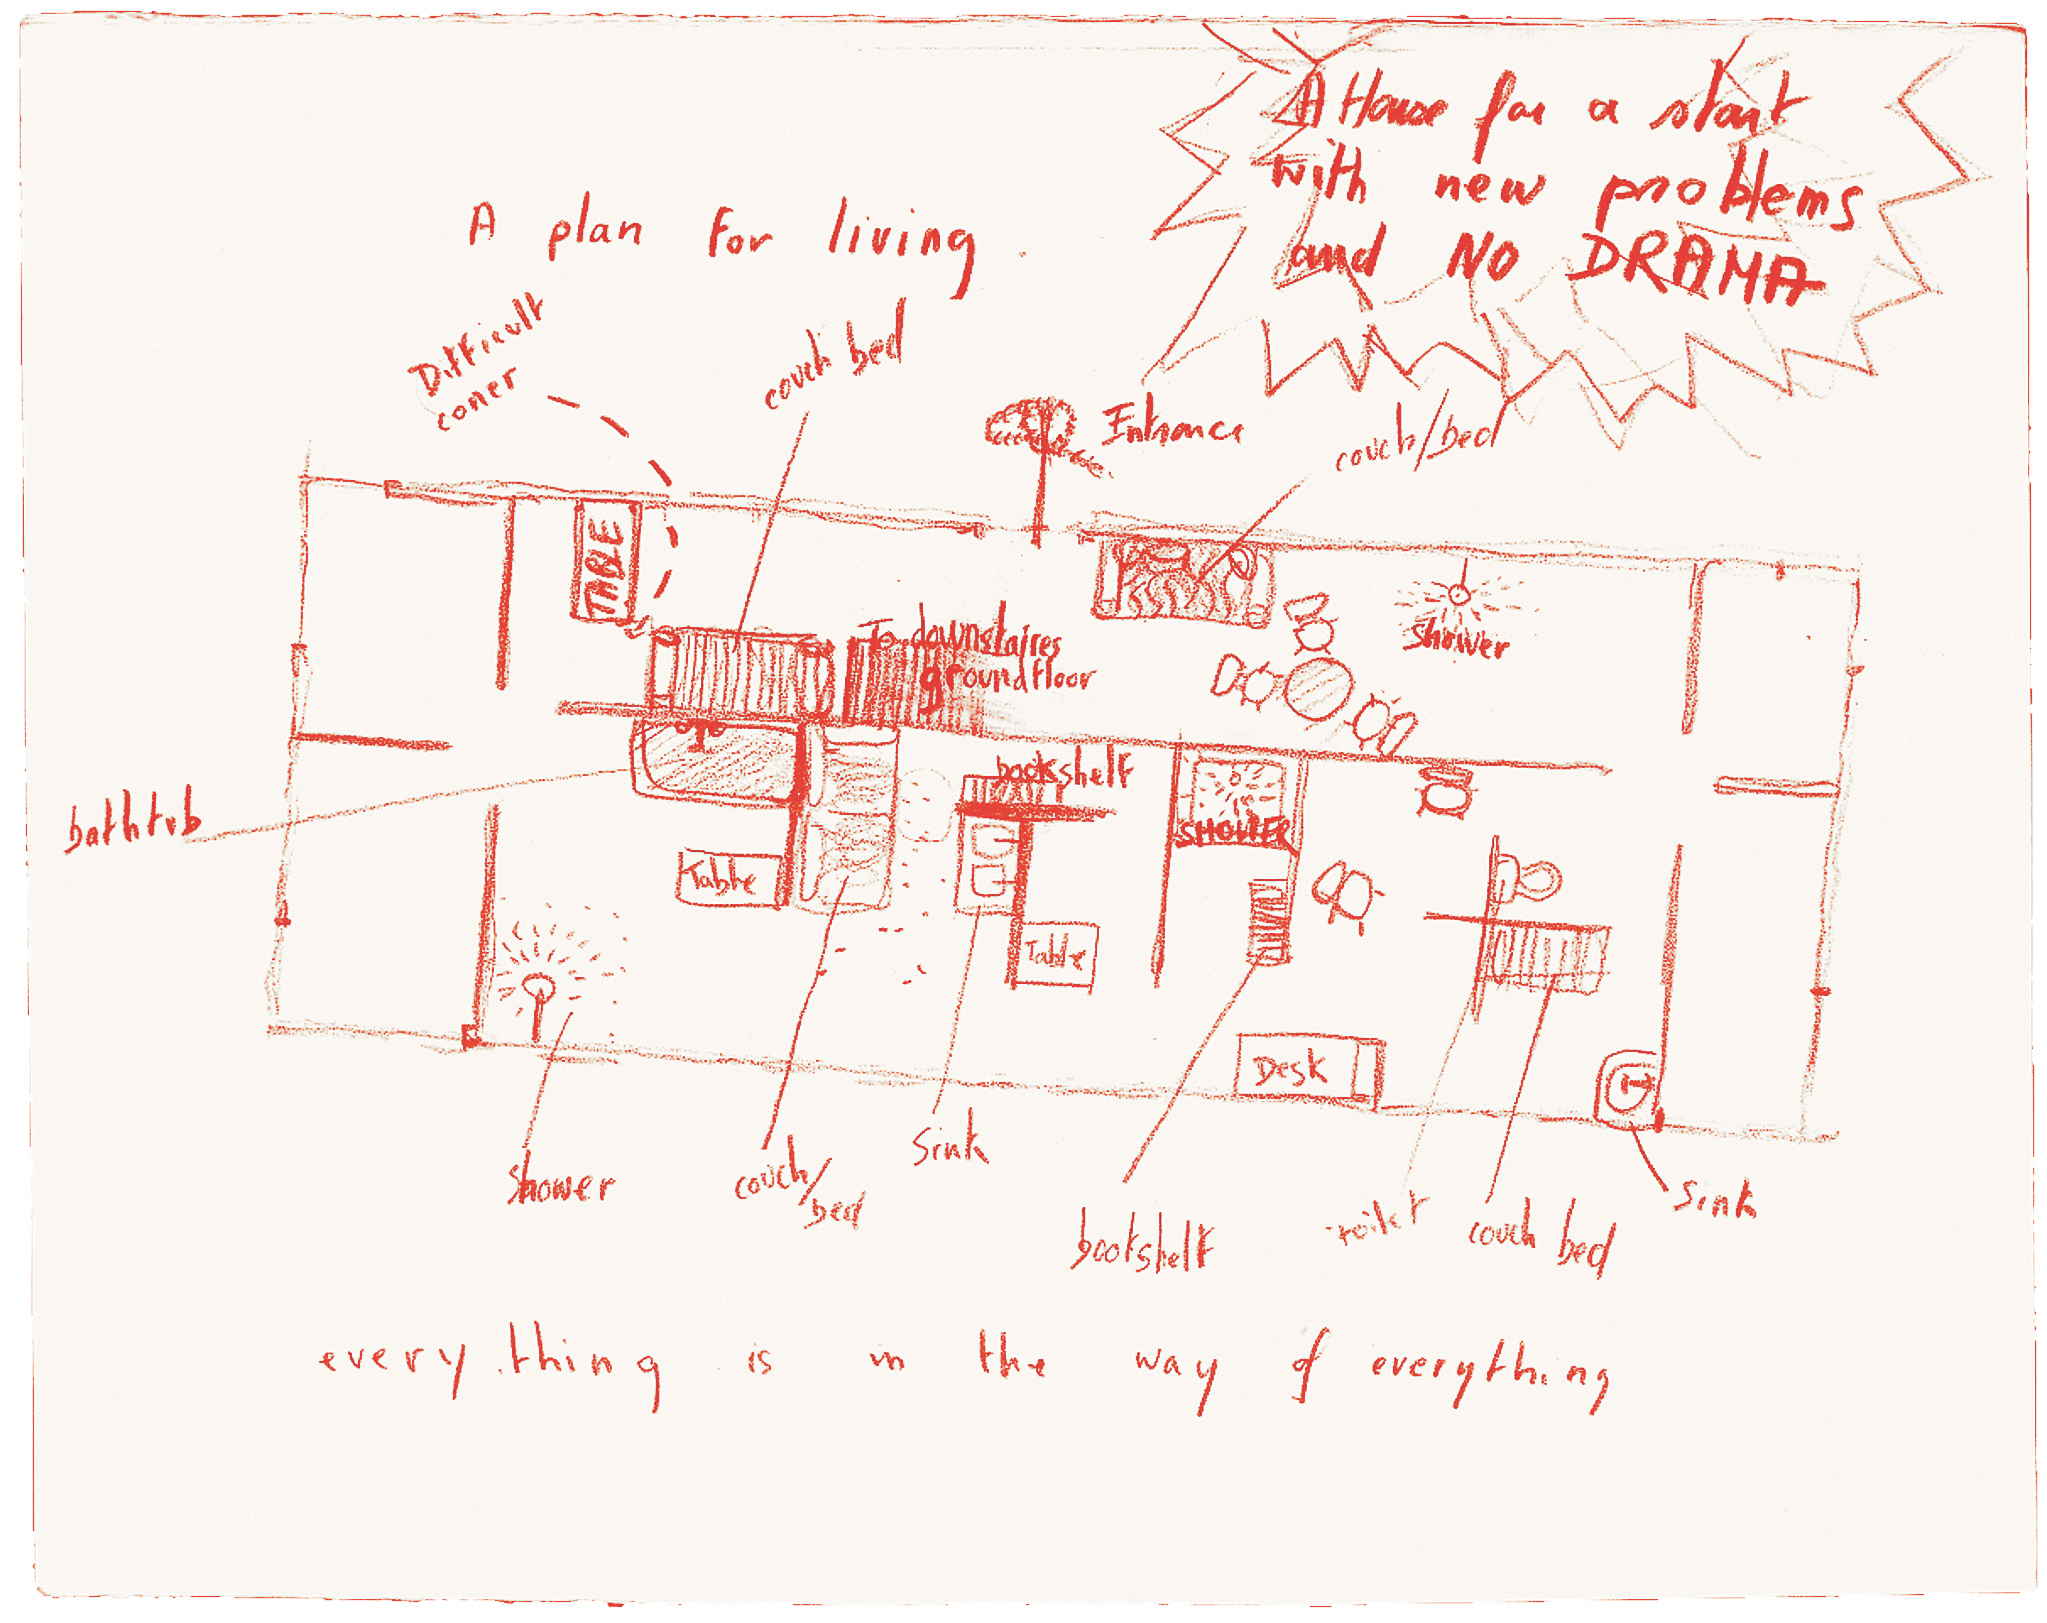 A House for a start
with new problems
and NO DRAMA
A plan for living.
Difficult
coner
couch bed
Entrance
couch/bed
TABLE
To downstaires
groundfloor
shower
bookshelf
bathtub
SHOWER
Table
Table
Desk
shower
couch/
bed
sink
bookshelf
toilet
couch bed
sink
everything is in the way of everything